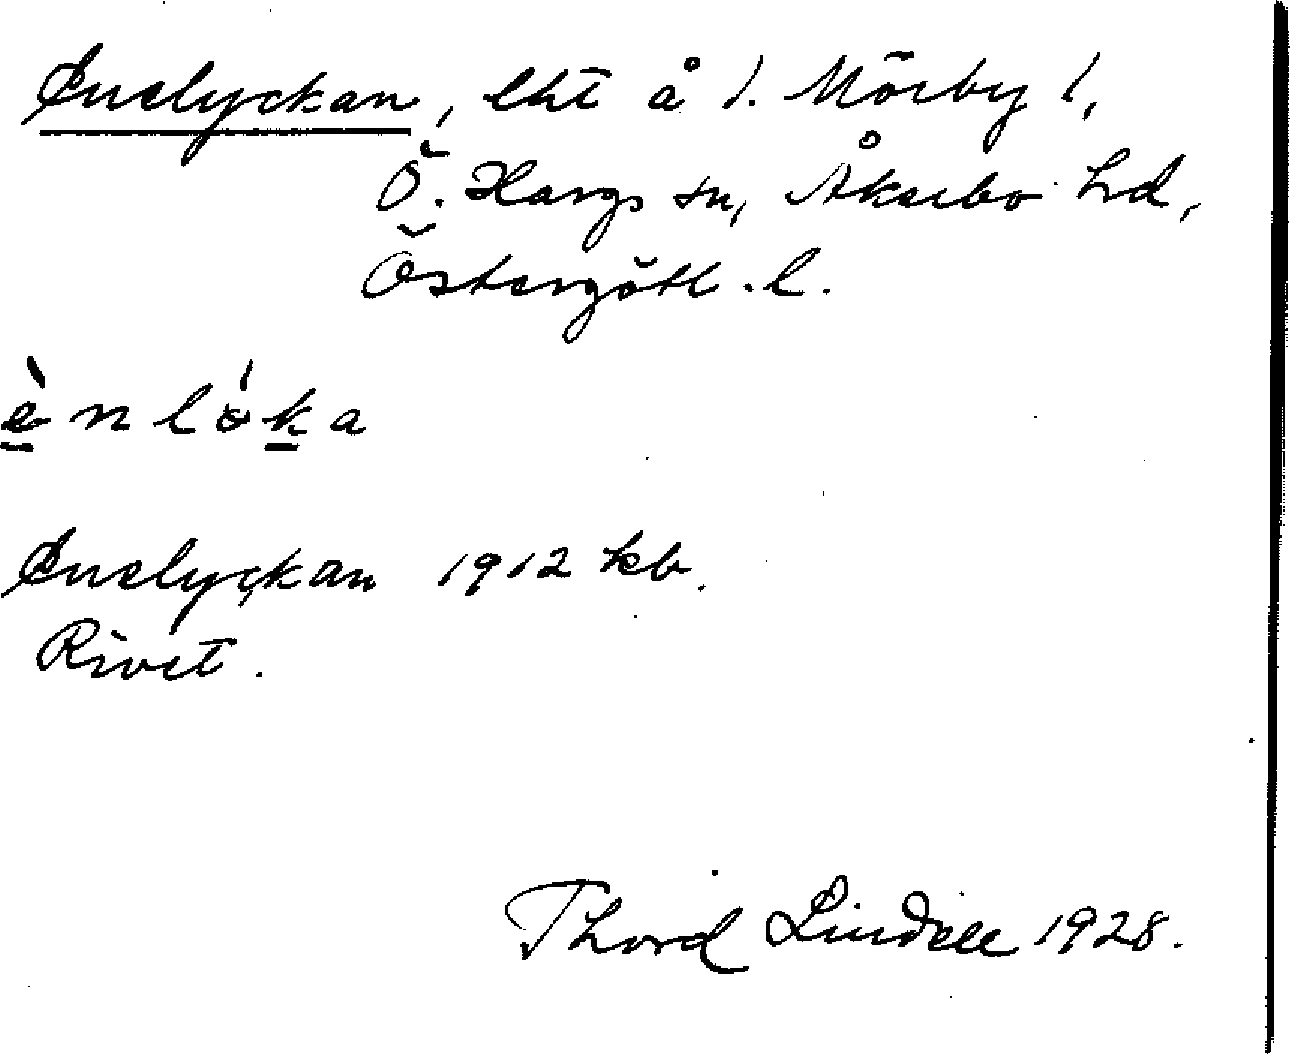 Enelyckan, lht å 1. Mörby 1,
Ö. Hargs sn, Åkerbo hd,
Östergötl. l.
ènlóka
Enelyckan 1912 kb.
Rivet.
Thord Lindell 1928.